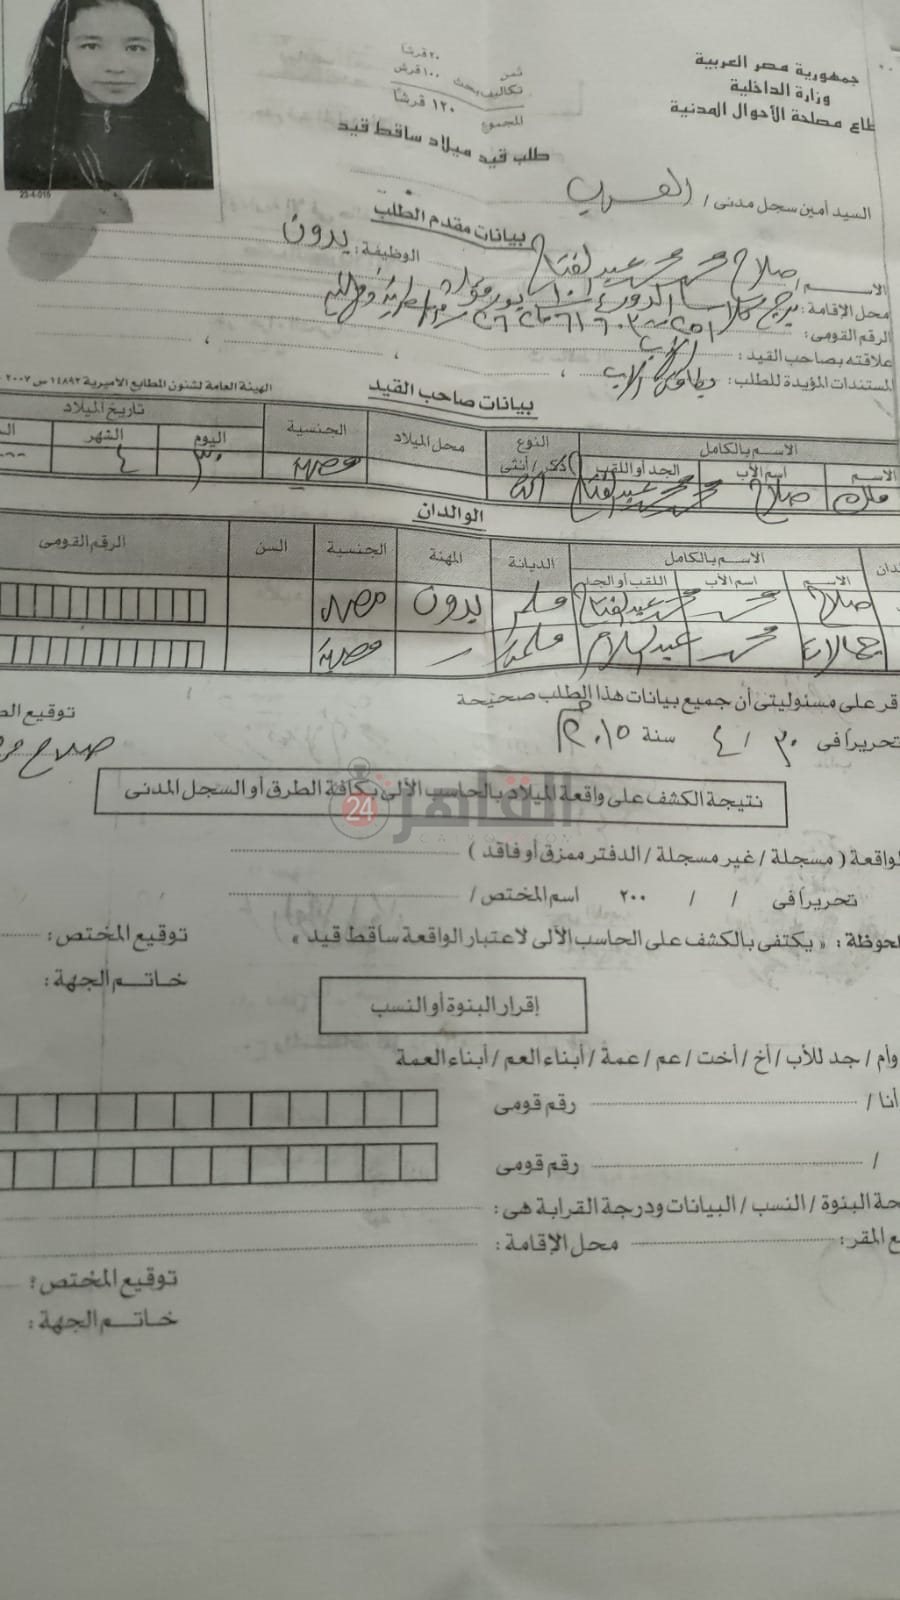 جمهورية مصر العربية
وزارة الداخلية
طاع مصلحة الأحوال المدنية
ثمن ٢٠ قرشا
تكاليف بحث ١٠٠ قرش
المجموع ١٢٠ قرشا
طلب قيد ميلاد ساقط قيد
23-4-015
السيد أمين سجل مدنى /
بيانات مقدم الطلب
الاسم: صلاح محمد محمد عبدالفتاح الوظيفة: بدون
محل الإقامة:
الرقم القومى:
علاقته بصاحب القيد: الأب
المستندات المؤيدة للطلب:
الهيئة العامة لشئون المطابع الأميرية ١٤٨٩٢ س ٢٠٠٧
بيانات صاحب القيد
الاسم بالكامل النوع ذكر / أنثى محل الميلاد الجنسية تاريخ الميلاد
الاسم اسم الأب الجد أو اللقب اليوم الشهر
ملك صلاح محمد محمد عبدالفتاح مصرية ٣٠ ٤
الوالدان
الاسم بالكامل الديانة المهنة الجنسية السن الرقم القومى
الاسم اسم الأب اللقب أو الجد
صلاح محمد محمد عبدالفتاح مسلم بدون مصرى
جمالات محمد عبدالسلام مسلمة مصرية
قر على مسئوليتى أن جميع بيانات هذا الطلب صحيحة
توقيع
تحريرا فى ٣٠ / ٤ سنة ٢٠١٥م
صلاح
نتيجة الكشف على واقعة الميلاد بالحاسب الألى بكافة الطرق أو السجل المدنى
القاهرة 24
CAIRO
لواقعة ( مسجلة / غير مسجلة / الدفتر ممزق أو فاقد )
تحريرا فى / / ٢٠٠ اسم المختص /
لحوظة: « يكتفى بالكشف على الحاسب الألى لاعتبار الواقعة ساقط قيد » توقيع المختص:
خاتم الجهة:
إقرار البنوة أو النسب
وأم / جد للأب / أخ / أخت / عم / عمة / أبناء العم / أبناء العمة
أنا / رقم قومى
/ رقم قومى
حة البنوة / النسب / البيانات ودرجة القرابة هى:
ع المقر: محل الإقامة:
توقيع المختص:
خاتم الجهة: